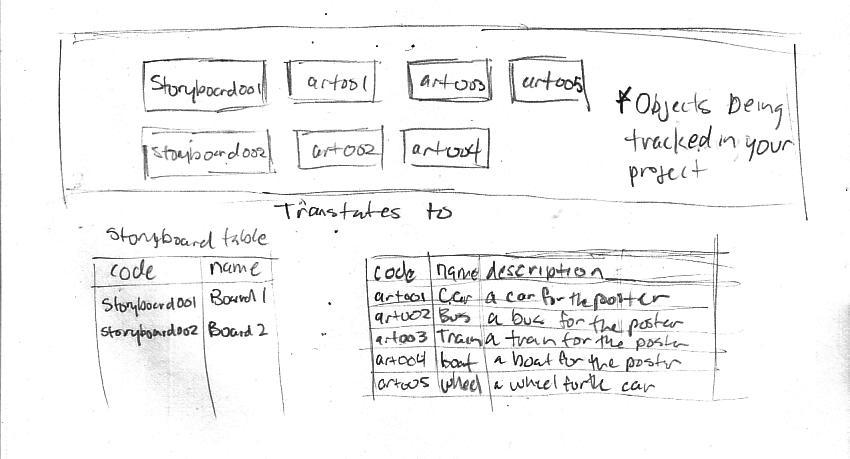 Storyboard001 art001 art003 art005
Storyboard002 art002 art004
*Objects being
tracked in your
project
Translates to
Storyboard table
code name
Storyboard001 Board 1
Storyboard002 Board 2
code name description
art001 Car a car for the poster
art002 Bus a bus for the poster
art003 Train a train for the poster
art004 boat a boat for the poster
art005 wheel a wheel for the car